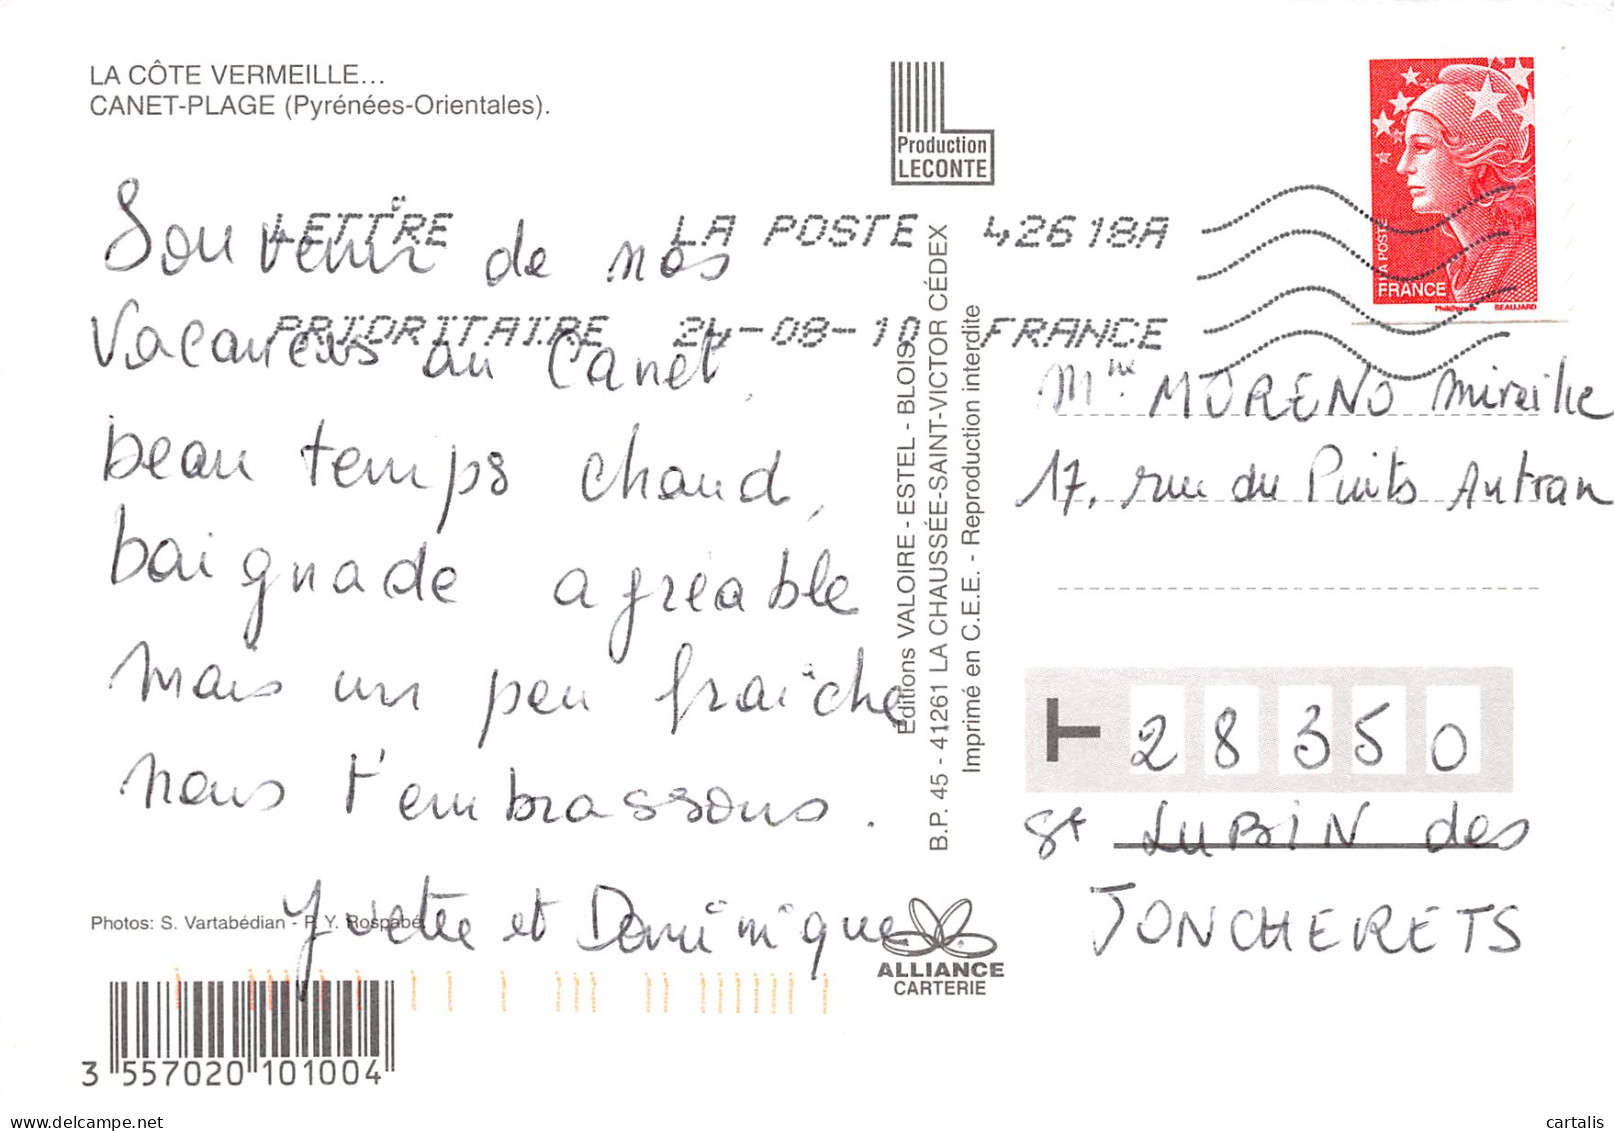 LA CÔTE VERMEILLE...
CANET-PLAGE (Pyrénées-Orientales).
Production
LECONTE
LETTRE LA POSTE 42618A
PRIORITAIRE 24-08-10 FRANCE
LA POSTE
FRANCE
BEAUJARD
Souvenir de nos
Vacances au Canet,
beau temps chaud,
baignade agréable
mais un peu fraîche
nous t'embrassons.
Yvette et Dominique
Éditions VALOIRE-ESTEL - BLOIS
B.P. 45 - 41261 LA CHAUSSÉE-SAINT-VICTOR CÉDEX
Imprimé en C.E.E. - Reproduction interdite
Mme MORENO Mireille
17, rue du Puits Autran
28350
St LUBIN des
JONCHERETS
Photos: S. Vartabédian - P. Y. Rospabé
ALLIANCE
CARTERIE
3 557020 101004
cartalis
www.delcampe.net